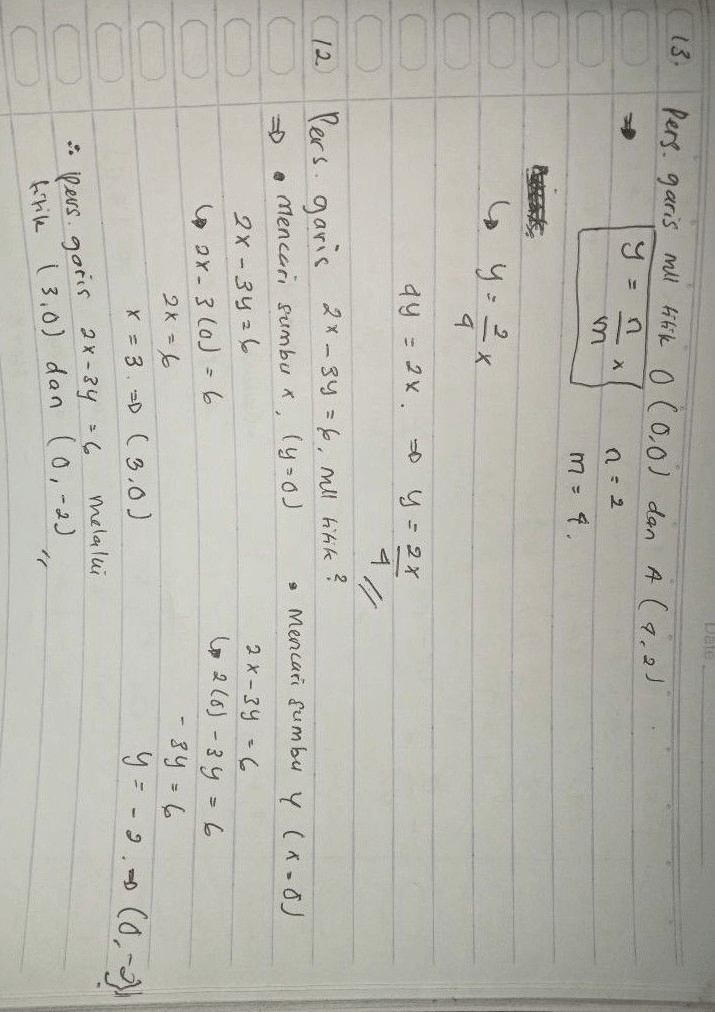 Date
13. Pers. garis mll titik O (0,0) dan A (4,2)
⇒ y = n/m x n = 2
m = 4.
↳ y = 2/4 x
4y = 2x. ⇒ y = 2x/4 //
12. Pers. garis 2x - 3y = 6, mll titik?
⇒ • Mencari sumbu x, (y=0) • Mencari sumbu y (x=0)
2x - 3y = 6 2x - 3y = 6
↳ 2x - 3(0) = 6 ↳ 2(0) - 3y = 6
2x = 6 -3y = 6
x = 3. ⇒ (3,0) y = -2. ⇒ (0,-2)
∴ pers. garis 2x - 3y = 6 melalui
titik (3,0) dan (0,-2) //